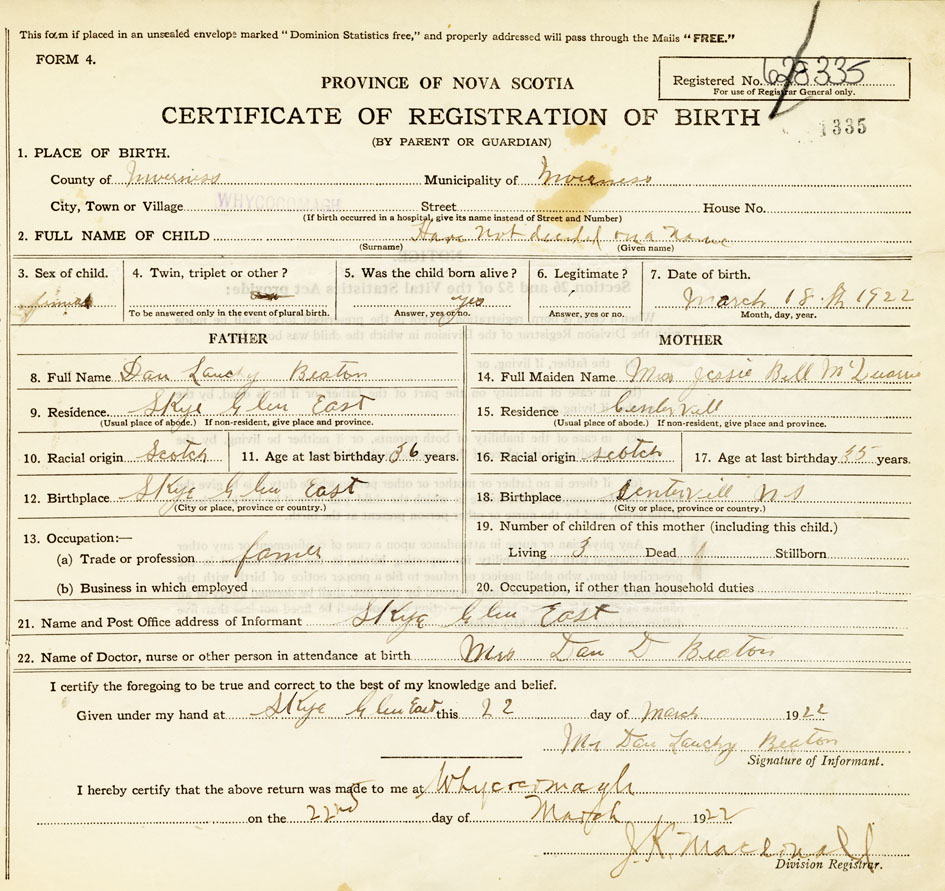 This form if placed in an unsealed envelope marked "Dominion Statistics free," and properly addressed will pass through the Mails "FREE."
FORM 4.
Registered No. 628335
For use of Registrar General only.
PROVINCE OF NOVA SCOTIA
CERTIFICATE OF REGISTRATION OF BIRTH
1335
(BY PARENT OR GUARDIAN)
1. PLACE OF BIRTH.
County of Inverness Municipality of Inverness
City, Town or Village WHYCOCOMAGH Street House No.
(If birth occurred in a hospital, give its name instead of Street and Number)
2. FULL NAME OF CHILD Have not decided on a name
(Surname) (Given name)
3. Sex of child. 4. Twin, triplet or other? 5. Was the child born alive? 6. Legitimate? 7. Date of birth.
yes March 18th 1922
To be answered only in the event of plural birth. Answer, yes or no. Answer, yes or no. Month, day, year.
FATHER MOTHER
8. Full Name Dan Lauchy Beaton 14. Full Maiden Name Jessie Bell
9. Residence. Skye Glen East 15. Residence Centervill
(Usual place of abode.) If non-resident, give place and province. (Usual place of abode.) If non-resident, give place and province.
10. Racial origin Scotch 11. Age at last birthday 36 years. 16. Racial origin scotch 17. Age at last birthday 35 years.
12. Birthplace Skye Glen East 18. Birthplace Sentervill N S
(City or place, province or country.) (City or place, province or country.)
13. Occupation:— 19. Number of children of this mother (including this child.)
(a) Trade or profession farmer Living 3 Dead Stillborn
(b) Business in which employed 20. Occupation, if other than household duties
21. Name and Post Office address of Informant Skye Glen East
22. Name of Doctor, nurse or other person in attendance at birth Mrs Dan D Beaton
I certify the foregoing to be true and correct to the best of my knowledge and belief.
Given under my hand at Skye Glen East this 22 day of March 1922
Mr Dan Lauchy Beaton
Signature of Informant.
I hereby certify that the above return was made to me at Whycocomagh
on the 22nd day of March 1922
J. K. Macdonald
Division Registrar.